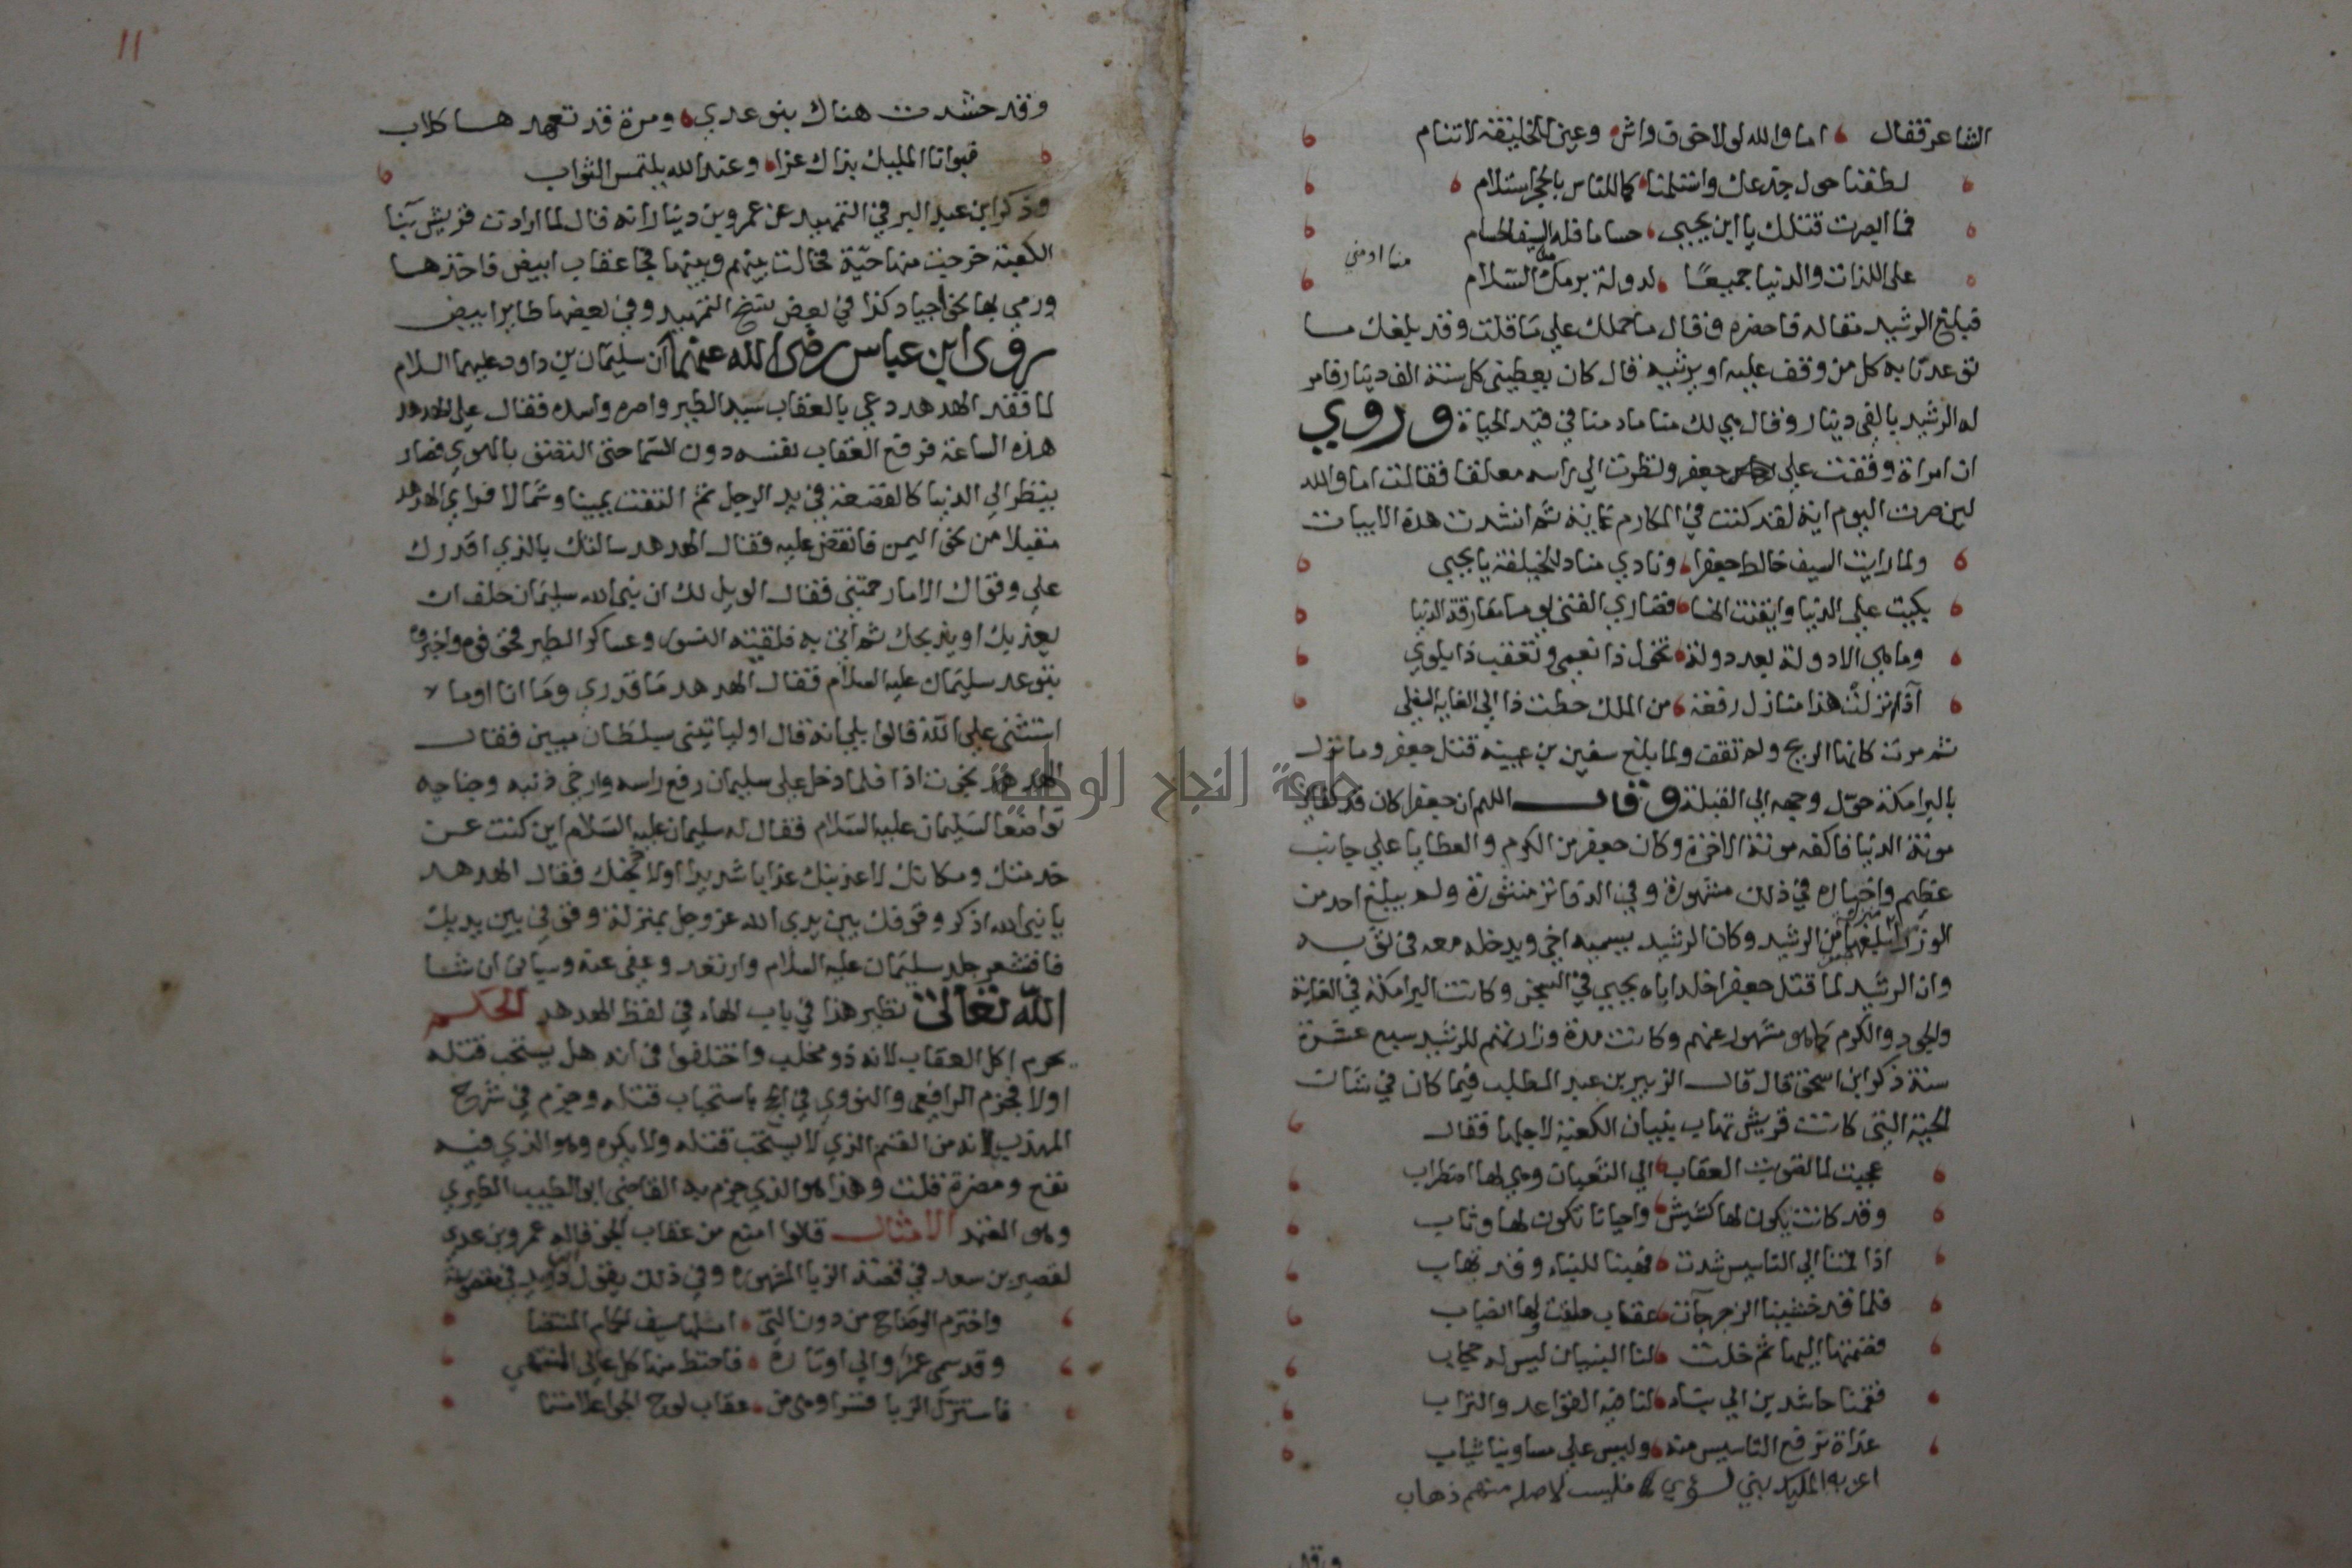 الشاعر فقال اما والله لولا خوف واش وعين للخليفة لا تنام
لطفنا حول جذعك واستلمنا كما للناس بالحجر استلام
فما ابصرت قتلك يا ابن يحيى حساما فله السيف الحسام
على اللذات والدنيا جميعا لدولة برمك السلام
منا او مني
فبلغ الرشيد مقاله فاحضره وقال ما حملك على ما قلت وقد بلغك ما
توعدنا به كل من وقف عليه او يرثيه قال كان يعطيني كل سنة الف دينار فامر
له الرشيد بالفي دينار وقال هي لك منا ما دمنا في قيد الحياة وروي
ان امراة وقفت على جعفر ونظرت الى راسه معلقا فقالت اما والله
لين صرت اليوم اية لقد كنت في المكارم غاية ثم انشدت هذه الابيات
ولما رايت السيف خالط جعفرا ونادى مناد للخليفة يا يحيى
بكيت على الدنيا وايقنت انما قصارى الفتى يوما مفارقة الدنيا
وما هي الا دولة بعد دولة تخول ذا نعمى وتعقب ذا بلوى
اذا نزلت هذا منازل رفعة من الملك حطت ذا الى الغاية السفلى
ثم مرت كانها الريح ولم تقف ولما بلغ سفين بن عيينه قتل جعفر وما نزل
بالبرامكة حول وجهه الى القبلة وقال اللهم ان جعفرا كان قد كفاني
مونة الدنيا فاكفه مونة الاخرة وكان جعفر من الكرم والعطايا على جانب
عظيم واخباره في ذلك مشهورة وفي الدفاتر منثورة ولم يبلغ احد من
الوزرا منزلة بلغها من الرشيد وكان الرشيد يسميه اخي ويدخله معه في ثوبه
وان الرشيد لما قتل جعفرا خلد اباه يحيى في السجن وكانت البرامكة في الغاية
والجود والكرم كما هو مشهور عنهم وكانت مدة وزارتهم للرشيد سبع عشرة
سنة ذكر ابن اسحق قال قال الزبير بن عبد المطلب فيما كان في شان
الحية التي كانت قريش تهاب بنيان الكعبة لاجلها فقال
عجبت لما تصوبت العقاب الى الثعبان وهي لها اضطراب
وقد كانت يكون لها كشيش واحيانا تكون لها وثاب
اذا قمنا الى التاسيس شدت فهبنا للبناء وقد تهاب
فلما قد خشينا الزجر جآت عقاب حلقت ولها انصباب
فضمتها اليها ثم خلت لنا البنيان ليس له حجاب
فقمنا حاشدين الى بناء لنا منه القواعد والتراب
غداة نرفع التاسيس منه وليس على مساوينا ثياب
اعز به المليك بني لؤي فليس لاصله منهم ذهاب
وقد
11
وقد حشدت هناك بنو عدي ومرة قد تعهدها كلاب
فبوانا المليك بذاك عزا وعند الله يلتمس الثواب
وذكر ابن عبد البر في التمهيد عن عمرو بن دينار انه قال لما ارادت قريش بنا
الكعبة خرجت منها حية فحالت بينهم وبينها فجا عقاب ابيض فاخذها
ورمى بها نحو اجياد كذا في بعض نسخ التمهيد وفي بعضها طاير ابيض
روى ابن عباس رضى الله عنهما ان سليمان بن داود عليهما السلام
لما فقد الهدهد دعى بالعقاب سيد الطير واصره واسده فقال علي بالهدهد
هذه الساعة فرفع العقاب نفسه دون السما حتى التصق بالهوى فصار
ينظر الى الدنيا كالقصعة في يد الرجل ثم التفت يمينا وشمالا فراى الهدهد
مقبلا من نحو اليمن فانقض عليه فقال الهدهد سالتك بالذي اقدرك
علي وقواك الا ما رحمتني فقال الويل لك ان نبي الله سليمان حلف ان
يعذبك او يذبحك ثم اتى به فلقيته النسور وعساكر الطير فخوفوه واخبروه
بتوعد سليمان عليه السلام فقال الهدهد ما قدري وما انا اوما
استثنى نبي الله قالوا بلى انه قال او لياتيني بسلطان مبين فقال
الهدهد نجوت اذا فلما دخل على سليمان رفع راسه وارخى ذنبه وجناحيه
تواضعا لسليمان عليه السلام فقال له سليمان عليه السلام اين كنت عن
خدمتك ومكانك لاعذبنك عذابا شديدا او لاذبحنك فقال الهدهد
يا نبي الله اذكر وقوفك بين يدي الله عز وجل بمنزلة وقوفي بين يديك
فاقشعر جلد سليمان عليه السلام وارتعد وعفى عنه وسياتى ان شا
الله تعالى نظير هذا في باب الهاء في لفظ الهدهد الحكم
يحرم اكل العقاب لانه ذو مخلب واختلفوا في انه هل يستحب قتله
اولا فجزم الرافعي والنووي في الحج باستحباب قتله وجزم في شرح
المهذب بانه من القسم الذي لا يستحب قتله ولا يكره وهو الذي فيه
نفع ومضرة قلت وهذا هو الذي جزم به القاضى ابو الطيب الطبري
وهو المعتمد الامثال قالوا امنع من عقاب الجو قاله عمرو بن عدي
لقصير بن سعد في قصة الزبا المشهورة وفي ذلك يقول ابن دريد في مقصورته
واخترم الوضاح من دون التي املها سيف الحمام المنتضا
وقد سمى عمرو الى اوتاره فاحتط منها كل عالي المنتهى
فاستنزل الزبا قسرا وهي من عقاب لوح الجو اعلا منتما
جامعة النجاح الوطنية